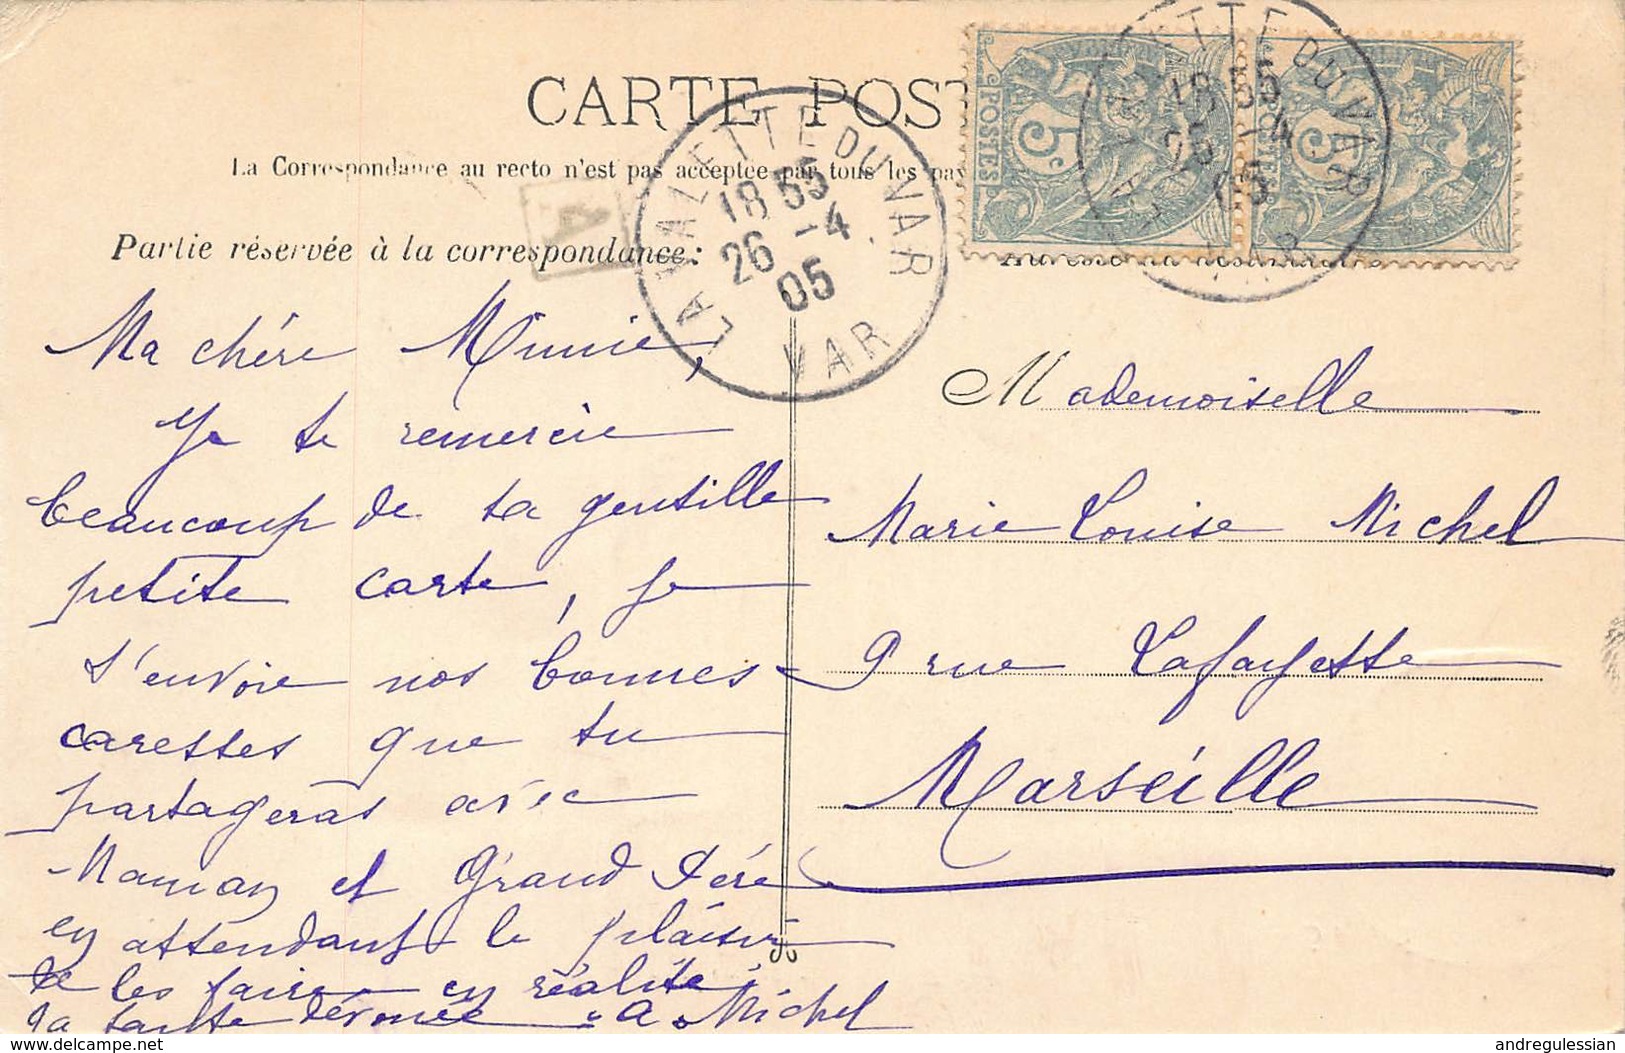 CARTE POST
La Correspondance au recto n'est pas acceptée par tous les pay
Partie réservée à la correspondance:
LA VALETTE DU VAR
18 55
26 -4
05
VAR
POSTES 5
POSTES 5
ETTE DU VAR
18 55
26 -4
05
A
Ma chére Mimie,
Je te remercie
beaucoup de ta gentille
petite carte, je
t'envoie nos bonnes
caresses que tu
partageras avec
Maman et Grand Père
en attendant le plaisir
de les faire en réalité;
Ta tante dévouée : A. Michel
Mademoiselle
Marie Louise Michel
9 rue Lafayette
Marseille
delcampe.net
andregulessian